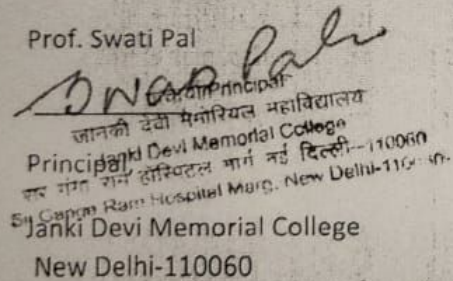 Prof. Swati Pal
Swati Pal
Principal
जानकी देवी मैमोरियल महाविद्यालय
Janki Devi Memorial College
Principal
सर गंगा राम हॉस्पिटल मार्ग नई दिल्ली-110060
Sir Ganga Ram Hospital Marg, New Delhi-110060.
Janki Devi Memorial College
New Delhi-110060